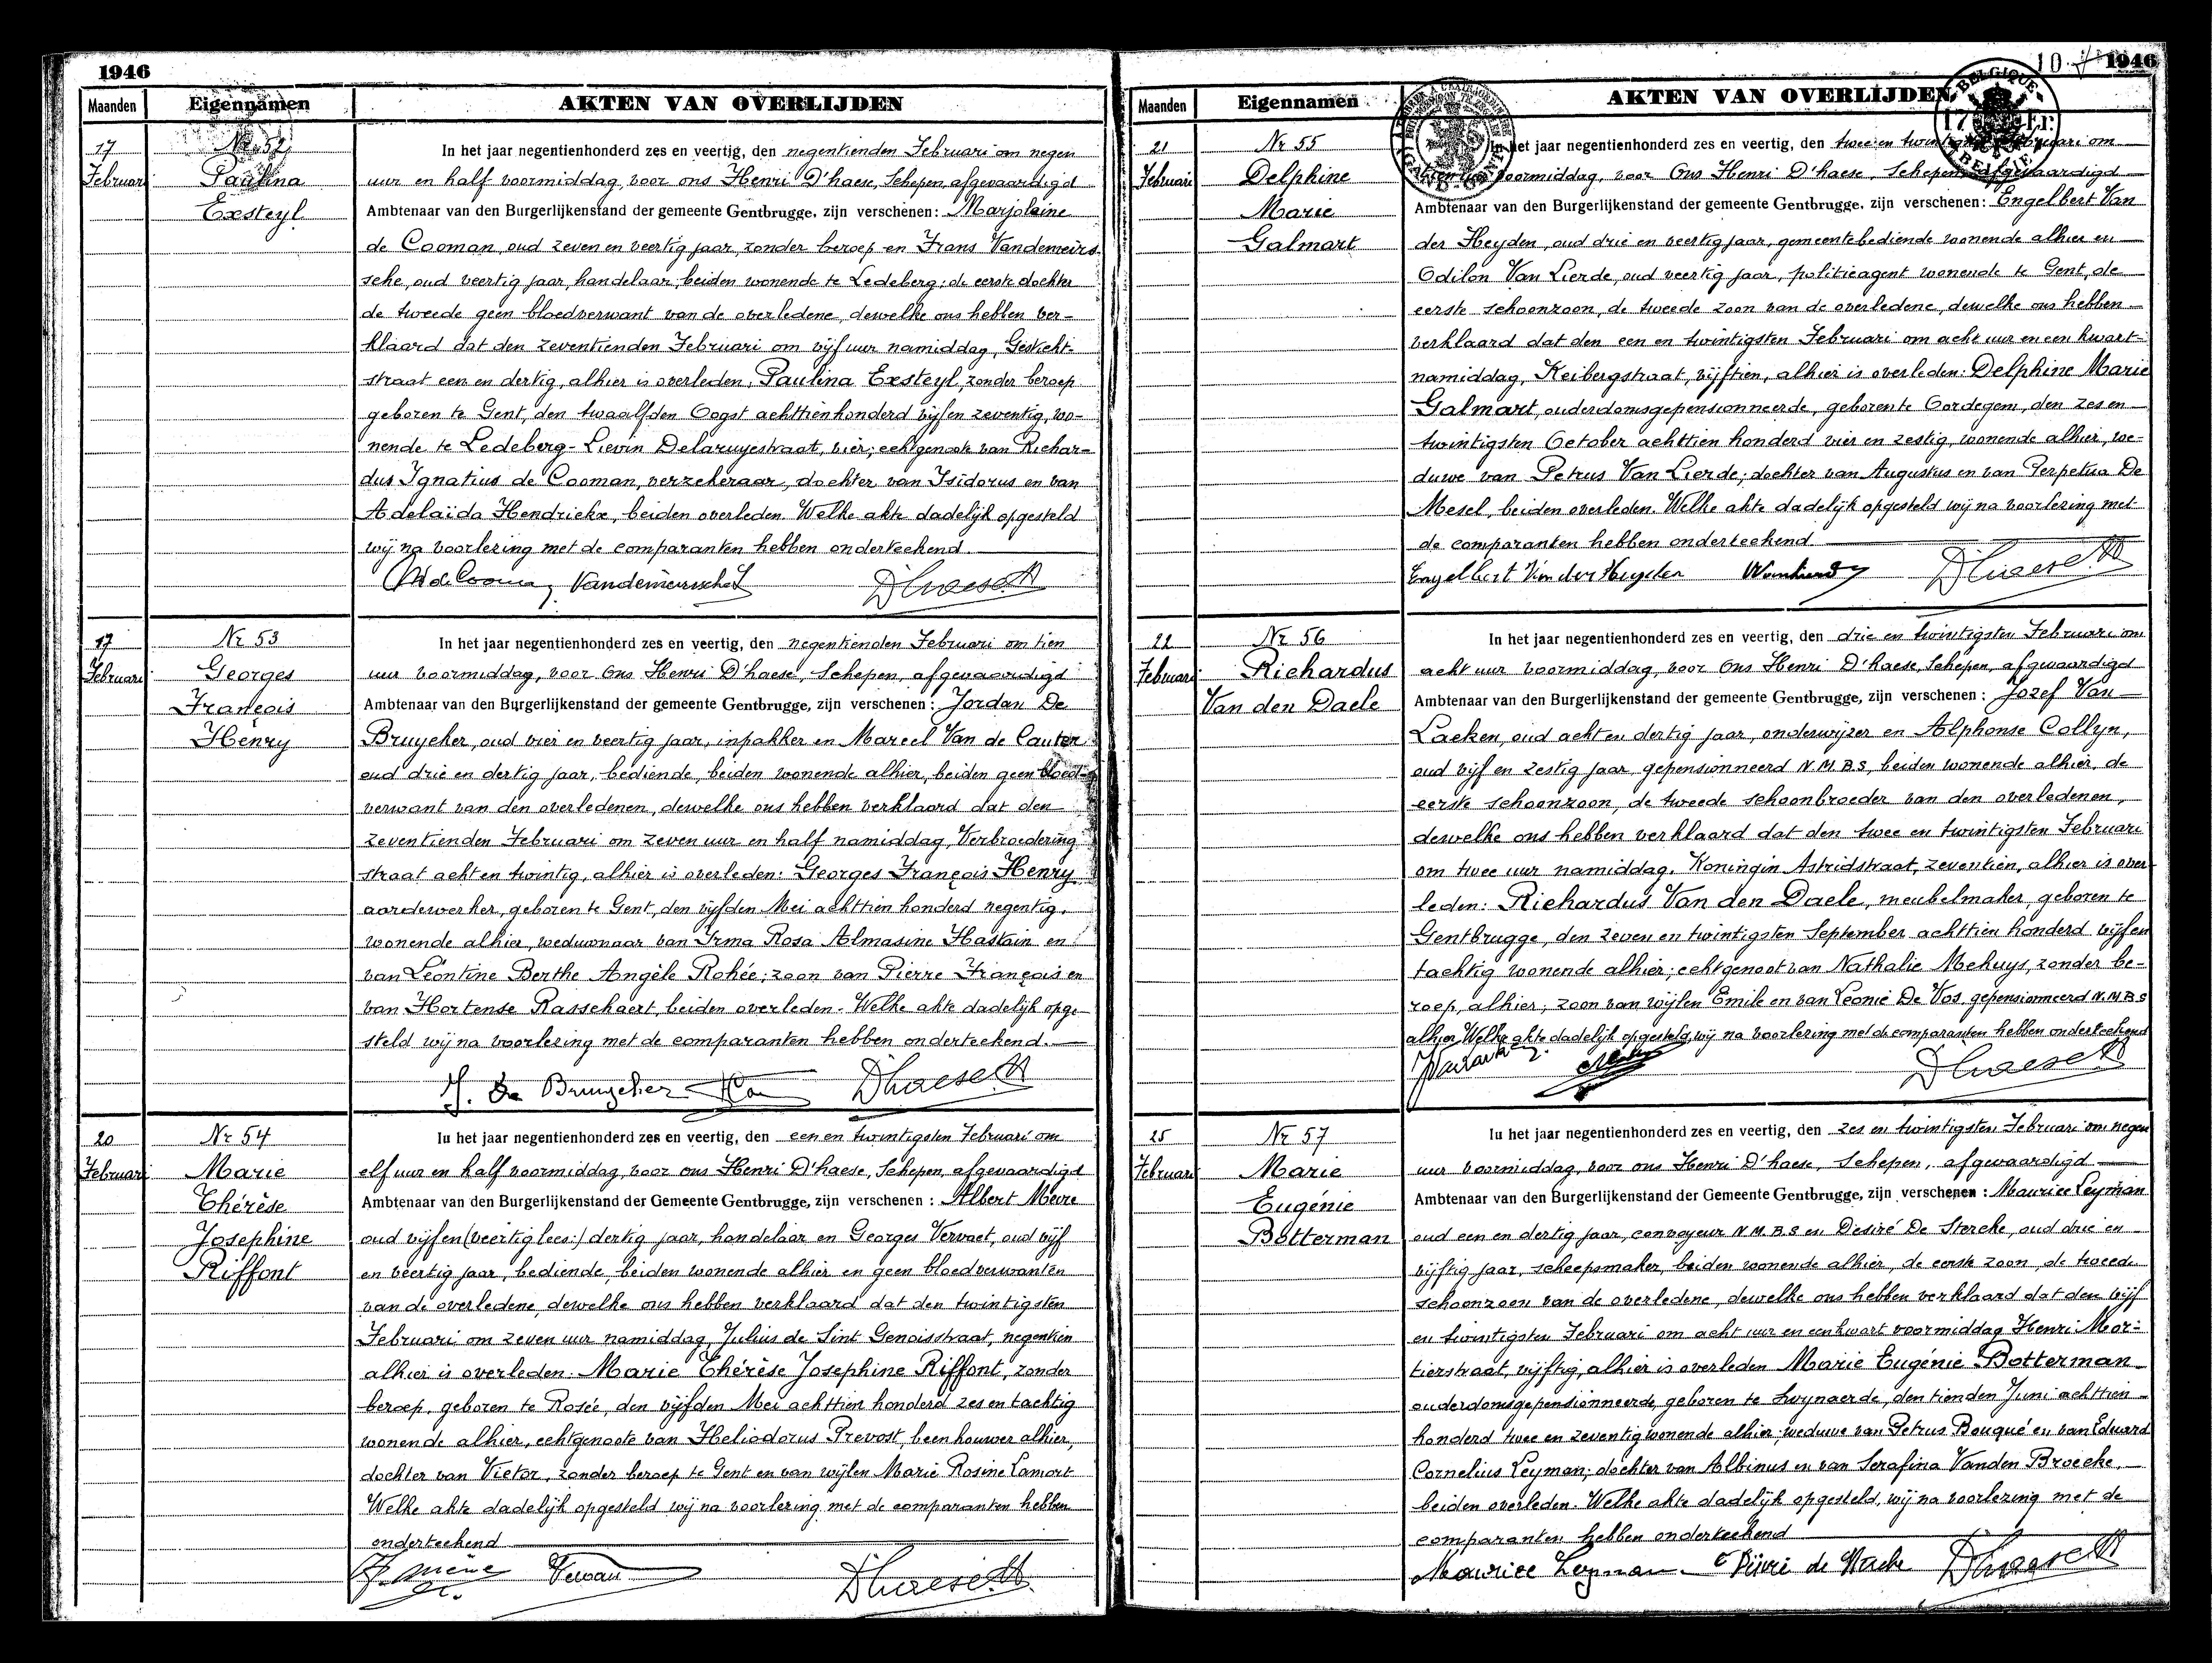 1946
Maanden Eigennamen AKTEN VAN OVERLIJDEN
17 Februari
Nr. 52
Paulina
Exsteyl
In het jaar negentienhonderd zes en veertig, den negentienden Februari om negen
uur en half voormiddag, voor ons Henri D'haese, Schepen, afgevaardigd
Ambtenaar van den Burgerlijkenstand der gemeente Gentbrugge, zijn verschenen: Marjoleine
de Cooman, oud zeven en veertig jaar, zonder beroep en Frans Vandemeirs-
sche, oud veertig jaar, handelaar, beiden wonende te Ledeberg; de eerste dochter
de tweede geen bloedverwant van de overledene, dewelke ons hebben ver-
klaard dat den zeventienden Februari om vijf uur namiddag, Gesticht-
straat een en dertig, alhier is overleden: Paulina Exsteyl, zonder beroep
geboren te Gent, den twaalfden Oogst achttienhonderd vijf en zeventig, wo-
nende te Ledeberg-Lievin Delaruyestraat, vier; echtgenoote van Richar-
dus Ignatius de Cooman, verzekeraar, dochter van Isidorus en van
Adelaïda Hendrickx, beiden overleden. Welke akte dadelijk opgesteld
wij na voorlezing met de comparanten hebben onderteekend.
M de Cooman Vandemeirssche D'haese H
17 Februari
Nr 53
Georges
François
Henry
In het jaar negentienhonderd zes en veertig, den negentienden Februari om tien
uur voormiddag, voor Ons Henri D'haese, Schepen, afgevaardigd
Ambtenaar van den Burgerlijkenstand der gemeente Gentbrugge, zijn verschenen: Jordan De
Bruycker, oud vier en veertig jaar, inpakker en Marcel Van de Cauter
oud drie en dertig jaar, bediende, beiden wonende alhier, beiden geen bloed-
verwant van den overledenen, dewelke ons hebben verklaard dat den
zeventienden Februari om zeven uur en half namiddag, Verbroedering
straat acht en twintig, alhier is overleden: Georges François Henry
aardewerker, geboren te Gent, den vijfden Mei achttien honderd negentig,
wonende alhier, weduwnaar van Irma Rosa Almasine Hastain en
van Léontine Berthe Angèle Rohée; zoon van Pierre François en
van Hortense Rasschaert, beiden overleden. Welke akte dadelijk opge-
steld wij na voorlezing met de comparanten hebben onderteekend.
J. De Bruycker D'haese H
20 Februari
Nr 54
Marie
Thérèse
Josephine
Riffont
In het jaar negentienhonderd zes en veertig, den een en twintigsten Februari om
elf uur en half voormiddag, voor ons Henri D'haese, Schepen, afgevaardigd
Ambtenaar van den Burgerlijkenstand der Gemeente Gentbrugge, zijn verschenen : Albert Mevre
oud vijf en (veertig lees:) dertig jaar, handelaar en Georges Vervaet, oud vijf
en veertig jaar, bediende, beiden wonende alhier en geen bloedverwanten
van de overledene, dewelke ons hebben verklaard dat den twintigsten
Februari om zeven uur namiddag, Julius de Sint Genoisstraat, negentien
alhier is overleden: Marie Thérèse Josephine Riffont, zonder
beroep, geboren te Rosée, den vijfden Mei achttien honderd zes en tachtig
wonende alhier, echtgenoote van Heliodorus Prevost, beenhouwer alhier,
dochter van Victor, zonder beroep te Gent en van wijlen Marie Rosine Lamort
Welke akte dadelijk opgesteld wij na voorlezing met de comparanten hebben
onderteekend
D'haese H
10 1946
Maanden Eigennamen AKTEN VAN OVERLIJDEN
BELGIQUE 17 Fr. BELGIE
21 Februari
Nr 55
Delphine
Marie
Galmart
In het jaar negentienhonderd zes en veertig, den twee en twintigsten Februari om
voormiddag, voor Ons Henri D'haese, Schepen, afgevaardigd
Ambtenaar van den Burgerlijkenstand der gemeente Gentbrugge, zijn verschenen: Engelbert Van
der Heyden, oud drie en veertig jaar, gemeentebediende wonende alhier en
Odilon Van Lierde, oud veertig jaar, politieagent wonende te Gent, de
eerste schoonzoon, de tweede zoon van de overledene, dewelke ons hebben
verklaard dat den een en twintigsten Februari om acht uur en een kwart
namiddag, Keibergstraat, vijftien, alhier is overleden: Delphine Marie
Galmart, ouderdomsgepensionneerde, geboren te Oordegem, den zes en
twintigsten October achttien honderd vier en zestig, wonende alhier, we-
duwe van Petrus Van Lierde; dochter van Augustus en van Perpetua De
Mesel, beiden overleden. Welke akte dadelijk opgesteld wij na voorlezing met
de comparanten hebben onderteekend
Engelbert Van der Heyden D'haese H
22 Februari
Nr 56
Richardus
Van den Daele
In het jaar negentienhonderd zes en veertig, den drie en twintigsten Februari om
acht uur voormiddag, voor Ons Henri D'haese, Schepen, afgevaardigd
Ambtenaar van den Burgerlijkenstand der gemeente Gentbrugge, zijn verschenen : Jozef Van
Laeken, oud acht en dertig jaar, onderwijzer en Alphonse Collyn,
oud vijf en zestig jaar, gepensionneerd N.M.B.S, beiden wonende alhier, de
eerste schoonzoon, de tweede schoonbroeder van den overledenen,
dewelke ons hebben verklaard dat den twee en twintigsten Februari
om twee uur namiddag, Koningin Astridstraat, zeventien, alhier is over-
leden: Richardus Van den Daele, meubelmaker, geboren te
Gentbrugge, den zeven en twintigsten September achttien honderd vijf en
tachtig wonende alhier; echtgenoot van Nathalie Mehuys, zonder be-
roep, alhier; zoon van wijlen Emile en van Leonie De Vos, gepensionneerd N.M.B.S
alhier. Welke akte dadelijk opgesteld, wij na voorlezing met de comparanten hebben onderteekend
D'haese H
25 Februari
Nr 57
Marie
Eugénie
Botterman
In het jaar negentienhonderd zes en veertig, den zes en twintigsten Februari om negen
uur voormiddag, voor ons Henri D'haese, Schepen, afgevaardigd
Ambtenaar van den Burgerlijkenstand der Gemeente Gentbrugge, zijn verschenen : Maurice Leyman
oud een en dertig jaar, convoyeur N.M.B.S en Desiré De Stercke, oud drie en
vijftig jaar, scheepsmaker, beiden wonende alhier, de eerste zoon, de tweede
schoonzoon van de overledene, dewelke ons hebben verklaard dat den vijf
en twintigsten Februari om acht uur en een kwart voormiddag Henri Mor-
tierstraat, vijftig, alhier is overleden Marie Eugénie Botterman
ouderdomsgepensionneerde, geboren te Swynaerde, den tienden Juni achttien
honderd twee en zeventig wonende alhier; weduwe van Petrus Bouqué en van Eduard
Cornelius Leyman; dochter van Albinus en van Serafina Vanden Broecke,
beiden overleden. Welke akte dadelijk opgesteld, wij na voorlezing met de
comparanten hebben onderteekend
Maurice Leyman D'haese H